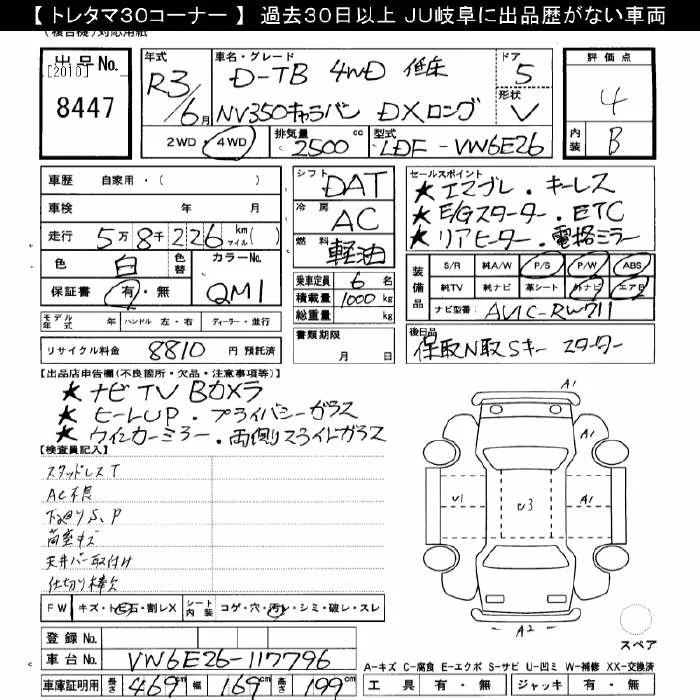 【 トレタマ30コーナー 】 過去30日以上 JU岐阜に出品歴がない車両
(複合機)対応用紙
出品No.
[2010]
8447
年式
R3/6月
車名・グレード
D-TB 4WD 低床
NV350キャラバン DXロング
ドア
5
形状
V
評価点
4
内装
B
2WD・4WD
排気量
2500cc
型式
LDF-VW6E26
車歴 自家用・( )
車検 年 月
走行 5万8千226km マイル( )
色 白 色替 カラーNo. QM1
保証書 有・無
モデル年式 年 ハンドル 左・右 ディーラー・並行
リサイクル料金 8810 円 預託済
シフト DAT
冷房 AC
燃料 軽油
乗車定員 6 名
積載量 1000 kg
総重量 kg
書類期限
月 日
セールスポイント
★ エマブレ・キーレス
★ E/Gスターター・ETC
★ リアヒーター・電格ミラー
装備品
S/R 純A/W P/S P/W ABS
純TV 純ナビ 革シート 外ナビ エアB
ナビ型番 AVIC-RW711
後日品
保取N取Sキー スターター
【出品店申告欄(不良箇所・欠品・注意事項等)】
★ ナビ TV Bカメラ
★ ヒールUP・プライバシーガラス
★ ウインカーミラー・両側スライドガラス
【検査員記入】
スタッドレスT
AC不良
下回りS、P
荷室キズ
天井バー取付け
仕切り棒欠
FW キズ・トビ石・割レX シート内装 コゲ・穴・汚レ・シミ・破レ・スレ
A1
U1
U3
A1
A1
A2
スペア
登録No.
車台No. VW6E26-117796
車庫証明用 長さ 469cm 幅 169cm 高さ 199cm
A-キズ C-腐食 E-エクボ S-サビ U-凹ミ W-補修 XX-交換済
工具 有・無 ジャッキ 有・無